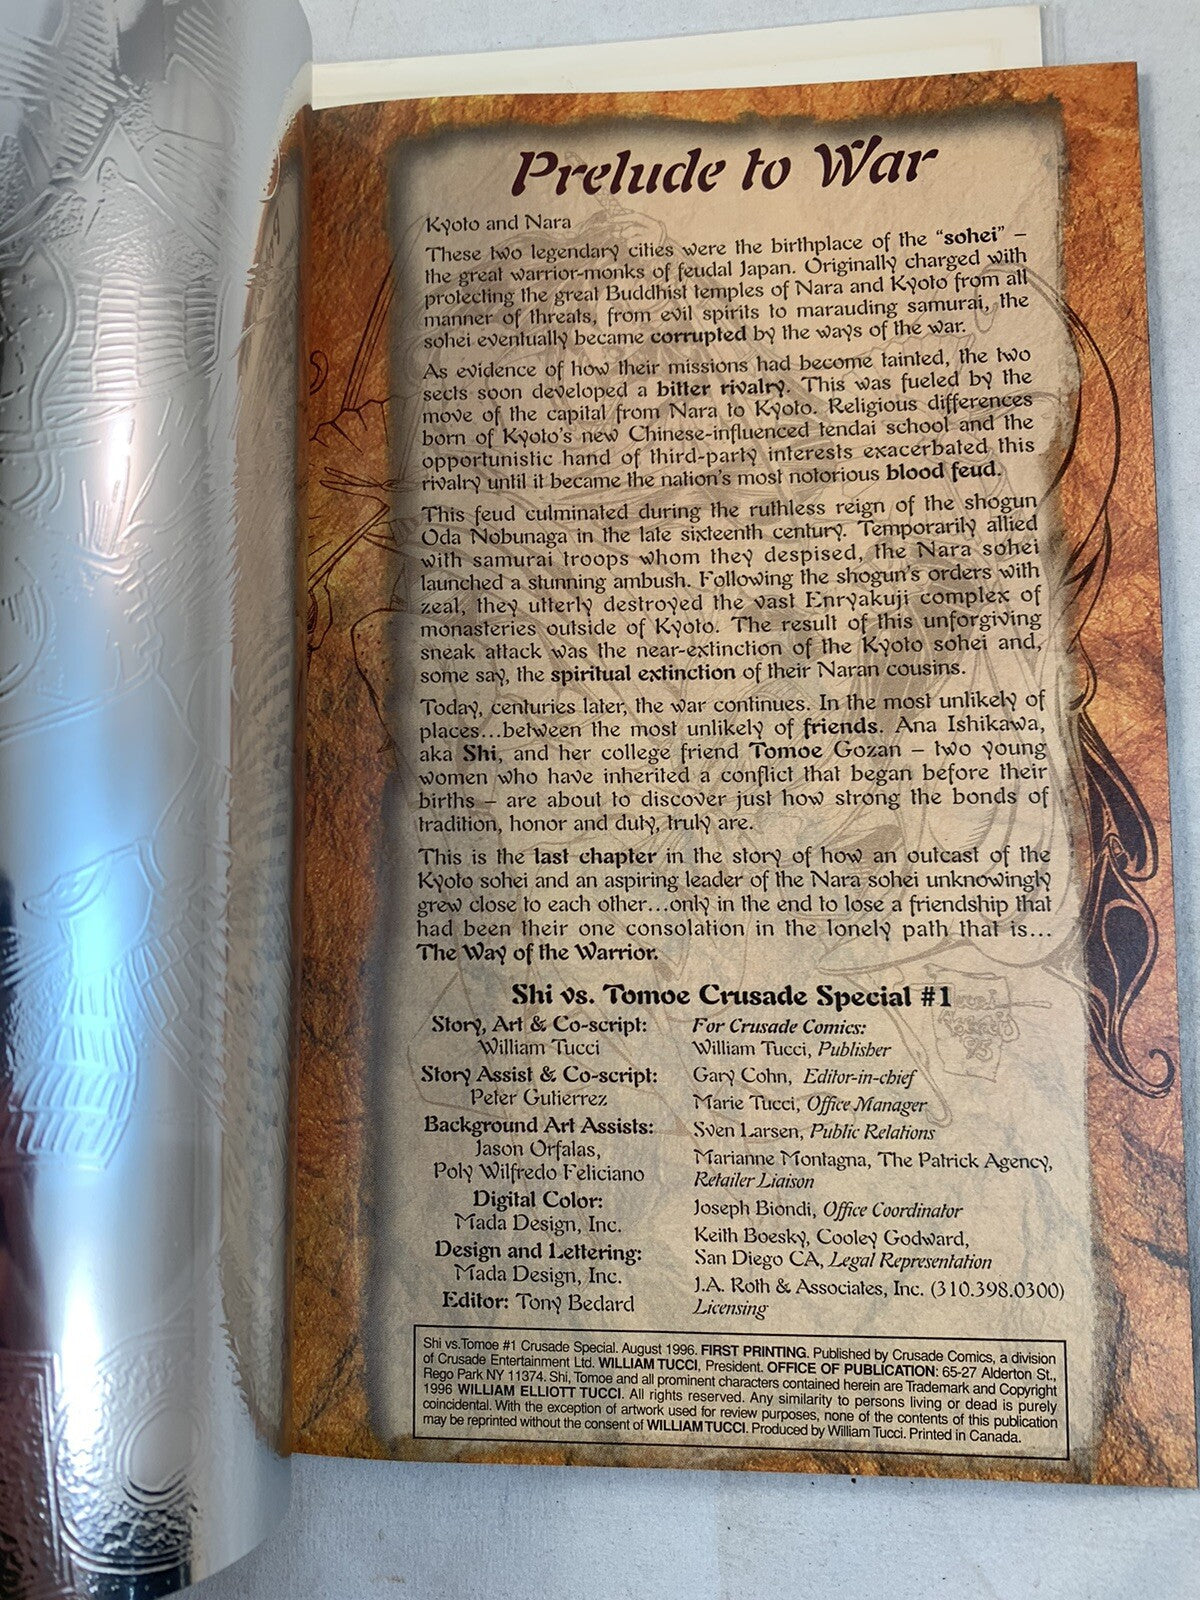 Prelude to War
Kyoto and Nara
These two legendary cities were the birthplace of the “sohei” –
the great warrior-monks of feudal Japan. Originally charged with
protecting the great Buddhist temples of Nara and Kyoto from all
manner of threats, from evil spirits to marauding samurai, the
sohei eventually became corrupted by the ways of the war.
As evidence of how their missions had become tainted, the two
sects soon developed a bitter rivalry. This was fueled by the
move of the capital from Nara to Kyoto. Religious differences
born of Kyoto's new Chinese-influenced tendai school and the
opportunistic hand of third-party interests exacerbated this
rivalry until it became the nation's most notorious blood feud.
This feud culminated during the ruthless reign of the shogun
Oda Nobunaga in the late sixteenth century. Temporarily allied
with samurai troops whom they despised, the Nara sohei
launched a stunning ambush. Following the shogun's orders with
zeal, they utterly destroyed the vast Enryakuji complex of
monasteries outside of Kyoto. The result of this unforgiving
sneak attack was the near-extinction of the Kyoto sohei and,
some say, the spiritual extinction of their Naran cousins.
Today, centuries later, the war continues. In the most unlikely of
places...between the most unlikely of friends. Ana Ishikawa,
aka Shi, and her college friend Tomoe Gozan – two young
women who have inherited a conflict that began before their
births – are about to discover just how strong the bonds of
tradition, honor and duty, truly are.
This is the last chapter in the story of how an outcast of the
Kyoto sohei and an aspiring leader of the Nara sohei unknowingly
grew close to each other...only in the end to lose a friendship that
had been their one consolation in the lonely path that is...
The Way of the Warrior.
Shi vs. Tomoe Crusade Special #1
Story, Art & Co-script:
William Tucci
Story Assist & Co-script:
Peter Gutierrez
Background Art Assists:
Jason Orfalas,
Poly Wilfredo Feliciano
Digital Color:
Mada Design, Inc.
Design and Lettering:
Mada Design, Inc.
Editor: Tony Bedard
For Crusade Comics:
William Tucci, Publisher
Gary Cohn, Editor-in-chief
Marie Tucci, Office Manager
Sven Larsen, Public Relations
Marianne Montagna, The Patrick Agency,
Retailer Liaison
Joseph Biondi, Office Coordinator
Keith Boesky, Cooley Godward,
San Diego CA, Legal Representation
J.A. Roth & Associates, Inc. (310.398.0300)
Licensing
Shi vs.Tomoe #1 Crusade Special. August 1996. FIRST PRINTING. Published by Crusade Comics, a division
of Crusade Entertainment Ltd. WILLIAM TUCCI, President. OFFICE OF PUBLICATION: 65-27 Alderton St.,
Rego Park NY 11374. Shi, Tomoe and all prominent characters contained herein are Trademark and Copyright
1996 WILLIAM ELLIOTT TUCCI. All rights reserved. Any similarity to persons living or dead is purely
coincidental. With the exception of artwork used for review purposes, none of the contents of this publication
may be reprinted without the consent of WILLIAM TUCCI. Produced by William Tucci. Printed in Canada.